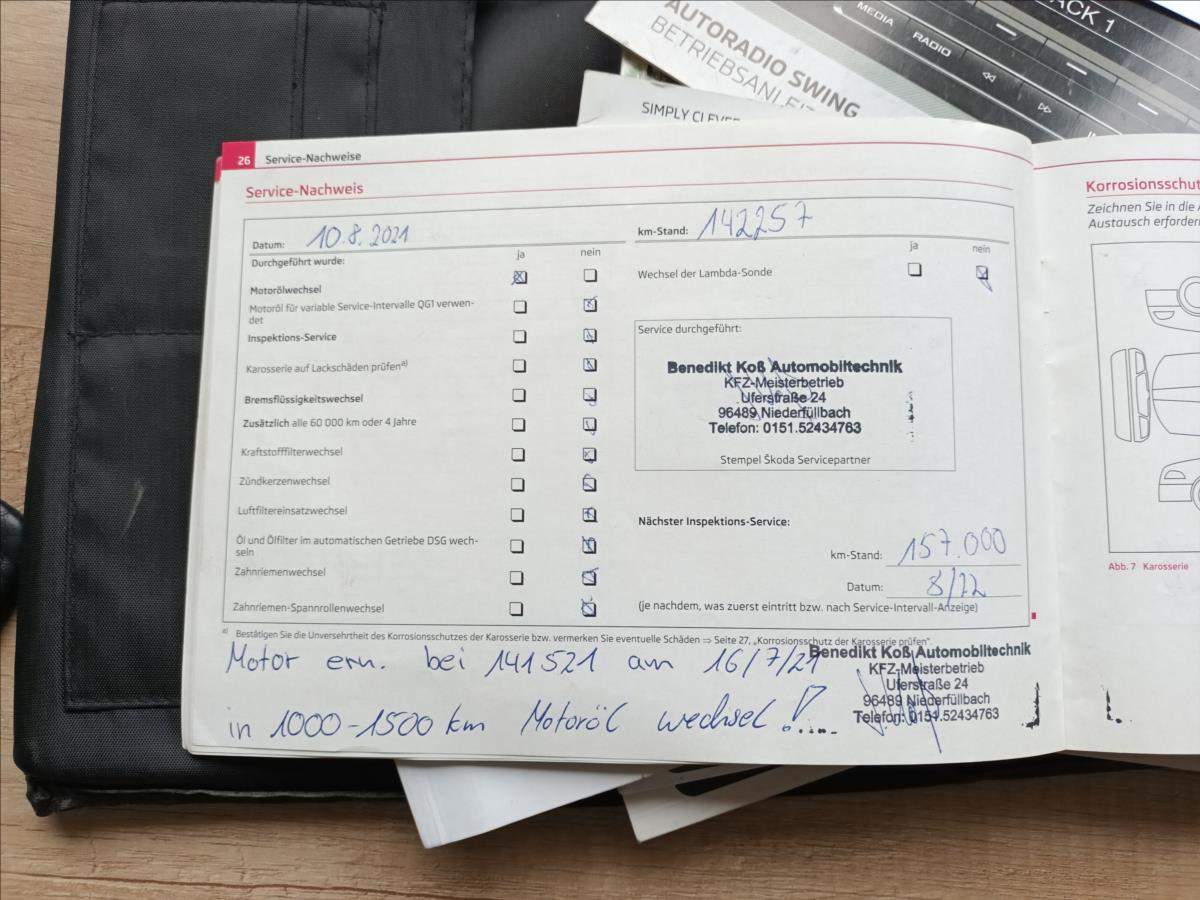 AUTORADIO SWING
BETRIEBSANLEIT
ACK 1
MEDIA
RADIO
SIMPLY CLEVER
26 Service-Nachweise
Service-Nachweis
Datum: 10.8.2021
Durchgeführt wurde:
ja nein
Motorölwechsel
Motoröl für variable Service-Intervalle QG1 verwen-
det
Inspektions-Service
Karosserie auf Lackschäden prüfen a)
Bremsflüssigkeitswechsel
Zusätzlich alle 60 000 km oder 4 Jahre
Kraftstofffilterwechsel
Zündkerzenwechsel
Luftfiltereinsatzwechsel
Öl und Ölfilter im automatischen Getriebe DSG wech-
seln
Zahnriemenwechsel
Zahnriemen-Spannrollenwechsel
km-Stand: 142257
ja nein
Wechsel der Lambda-Sonde
Service durchgeführt:
Benedikt Koß Automobiltechnik
KFZ-Meisterbetrieb
Uferstraße 24
96489 Niederfüllbach
Telefon: 0151.52434763
Stempel Škoda Servicepartner
Nächster Inspektions-Service:
km-Stand: 157.000
Datum: 8/22
(je nachdem, was zuerst eintritt bzw. nach Service-Intervall-Anzeige)
a) Bestätigen Sie die Unversehrtheit des Korrosionsschutzes der Karosserie bzw. vermerken Sie eventuelle Schäden ⇒ Seite 27, „Korrosionsschutz der Karosserie prüfen“.
Motor ern. bei 141521 am 16/7/21
in 1000-1500 km Motoröl wechsel !
Benedikt Koß Automobiltechnik
KFZ-Meisterbetrieb
Uferstraße 24
96489 Niederfüllbach
Telefon: 0151.52434763
Korrosionsschut
Zeichnen Sie in die A
Austausch erforder
Abb. 7 Karosserie